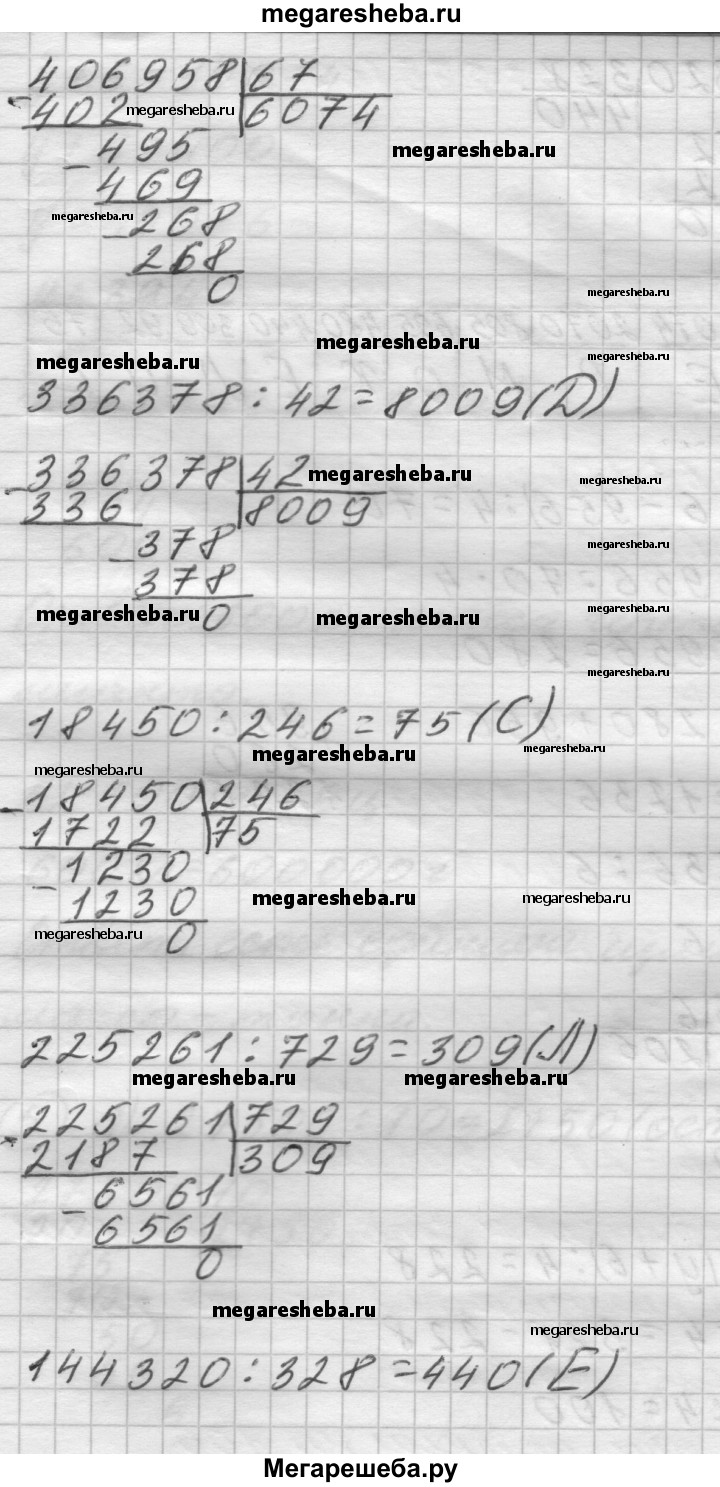 megaresheba.ru
406958 67
- 402 megaresheba.ru 6074
- 495 megaresheba.ru
469
megaresheba.ru - 268
268
0 megaresheba.ru
megaresheba.ru
megaresheba.ru megaresheba.ru
336378 : 42 = 8009 (D)
- 336378 42 megaresheba.ru megaresheba.ru
336 8009
- 378 megaresheba.ru
378
megaresheba.ru 0 megaresheba.ru megaresheba.ru
megaresheba.ru
18450 : 246 = 75 (С)
megaresheba.ru megaresheba.ru
megaresheba.ru
- 18450 246
1722 75
- 1230
1230 megaresheba.ru megaresheba.ru
megaresheba.ru 0
225261 : 729 = 309 (Л)
megaresheba.ru megaresheba.ru
- 225261 729
2187 309
- 6561
6561
0
megaresheba.ru
megaresheba.ru
144320 : 328 = 440 (Е)
Мегарешеба.ру